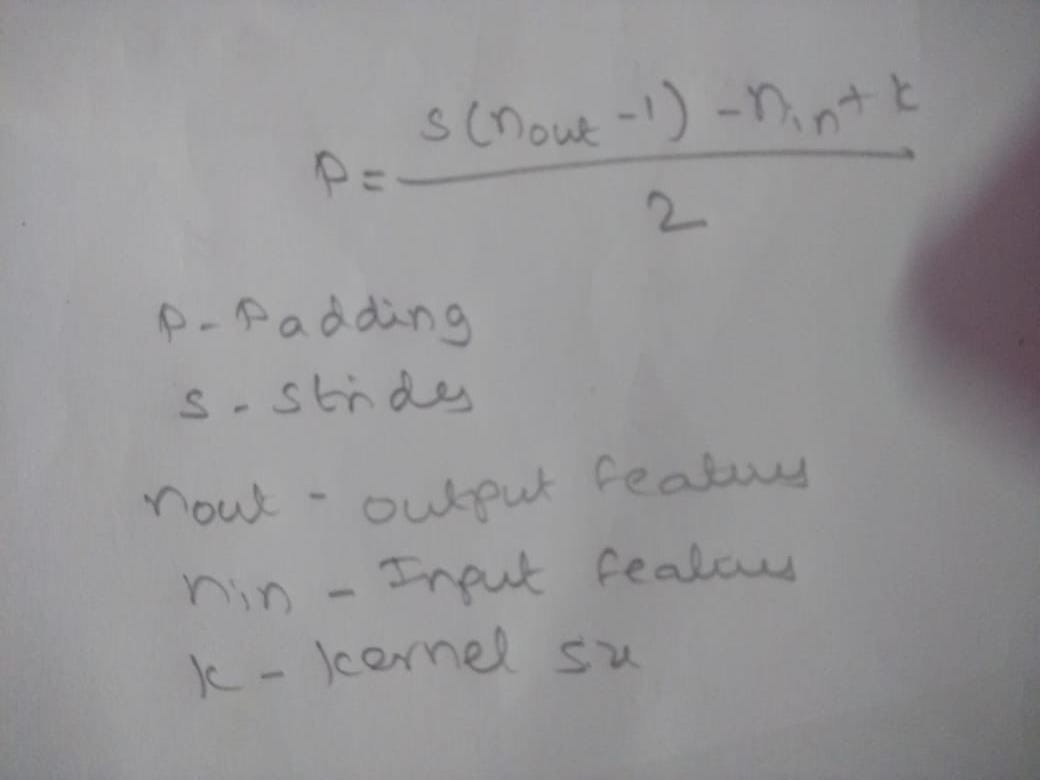 P = s(nout - 1) - nin + k
2
P - Padding
s - strides
nout - output features
nin - Input features
k - kernel size